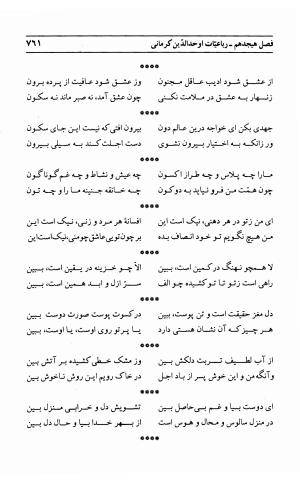 فصل هیجدهم ـ رباعیّات اوحدالدّین کرمانی ۷۶۱
****
از عشق شود ادیب عاقل مجنون وز عشق شود عاقبت از پرده برون
زنهار به عشق در ملامت نکنی چون عشق آمد، نه صبر ماند نه سکون
****
جهدی بکن ای خواجه درین عالم دون بیرون افتی که نیست این جای سکون
ور زانکه به اختیار بیرون نشوی دست اجلت کند به سیلی بیرون
****
ما را چه پلاس و چه طراز اکسون چه عیش و نشاط و چه غم گوناگون
چون همّت من فرو نیاید به دو کون چه خانقه جنینه ما را و چه تون
****
ای من زتو در هر دهنی، نیک است این افسانهٔ هر مرد و زنی، نیک است این
من هیچ نگویم تو خود انصاف بده بر چون تویی عاشق چو منی، نیک است این
****
لا همچو نهنگ در کمین است، ببین الاّ چو خزینه در یقین است، ببین
راهی است زتو تا تو کشیده چو الف سرّ ازل و ابد همین است، ببین
****
دل مغز حقیقت است و تن پوست، ببین در کسوت پوست صورت دوست ببین
هر چیز که آن نشان هستی دارد یا پرتو روی اوست، یا اوست، ببین
****
از آب لطیف تربت دلکش بین وز مشک خطی کشیده بر آتش بین
وآنگه من و این خوش پسر از باد اجل در خاک رویم این روش ناخوش بین
****
ای دوست بیا و غم بی حاصل بین تشویش دل و خرابی منزل بین
در منزل سالوس و محال و هوس است از بهر خدا بیا و حال دل بین
****